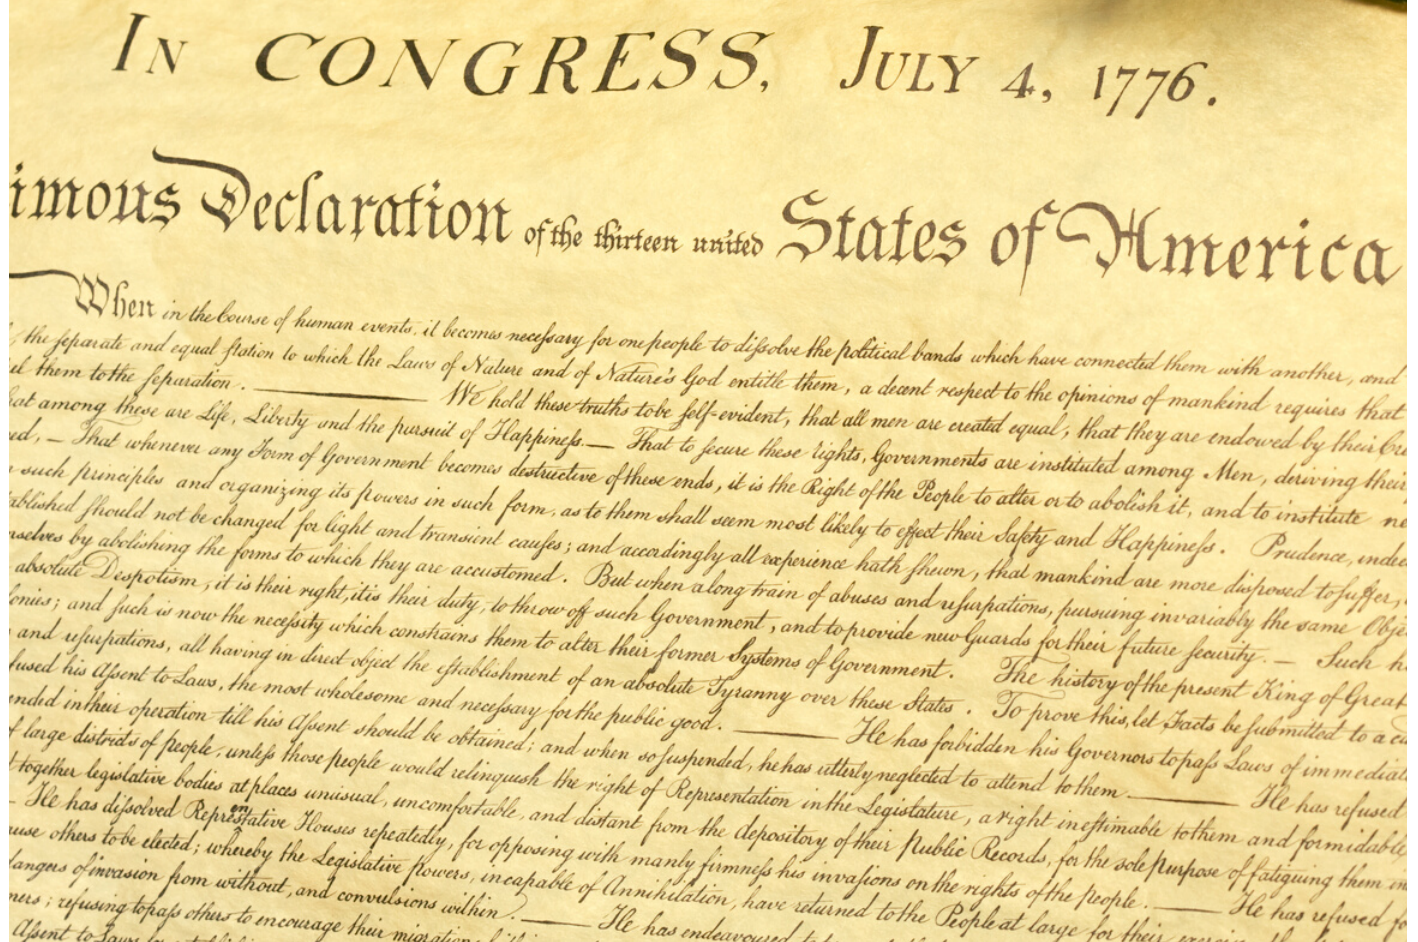 IN CONGRESS, JULY 4, 1776.
imous Declaration of the thirteen united States of America
When in the Course of human events, it becomes necessary for one people to dissolve the political bands which have connected them with another, and
the separate and equal station to which the Laws of Nature and of Nature's God entitle them, a decent respect to the opinions of mankind requires that
el them to the separation. ——— We hold these truths to be self-evident, that all men are created equal, that they are endowed by their Cre
hat among these are Life, Liberty and the pursuit of Happiness.— That to secure these rights, Governments are instituted among Men, deriving their
ed, — That whenever any Form of Government becomes destructive of these ends, it is the Right of the People to alter or to abolish it, and to institute ne
such principles and organizing its powers in such form, as to them shall seem most likely to effect their Safety and Happiness. Prudence, indee
ablished should not be changed for light and transient causes; and accordingly all experience hath shewn, that mankind are more disposed to suffer,
mselves by abolishing the forms to which they are accustomed. But when a long train of abuses and usurpations, pursuing invariably the same Obje
absolute Despotism, it is their right, it is their duty, to throw off such Government, and to provide new Guards for their future security.— Such h
onies; and such is now the necessity which constrains them to alter their former Systems of Government. The history of the present King of Great
and usurpations, all having in direct object the establishment of an absolute Tyranny over these States. To prove this, let Facts be submitted to a ca
fused his Assent to Laws, the most wholesome and necessary for the public good. ——— He has forbidden his Governors to pass Laws of immediat
ended in their operation till his Assent should be obtained; and when so suspended, he has utterly neglected to attend to them ——— He has refused
f large districts of people, unless those people would relinquish the right of Representation in the Legislature, a right inestimable to them and formidable
t together legislative bodies at places unusual, uncomfortable, and distant from the depository of their Public Records, for the sole purpose of fatiguing them in
— He has dissolved Representative Houses repeatedly, for opposing with manly firmness his invasions on the rights of the people. ——— He has refused fo
use others to be elected; whereby the Legislative powers, incapable of Annihilation, have returned to the People at large for their exercise
angers of invasion from without, and convulsions within. ——— He has endeavoured to
ners; refusing to pass others to encourage their migration
Assent to Laws for